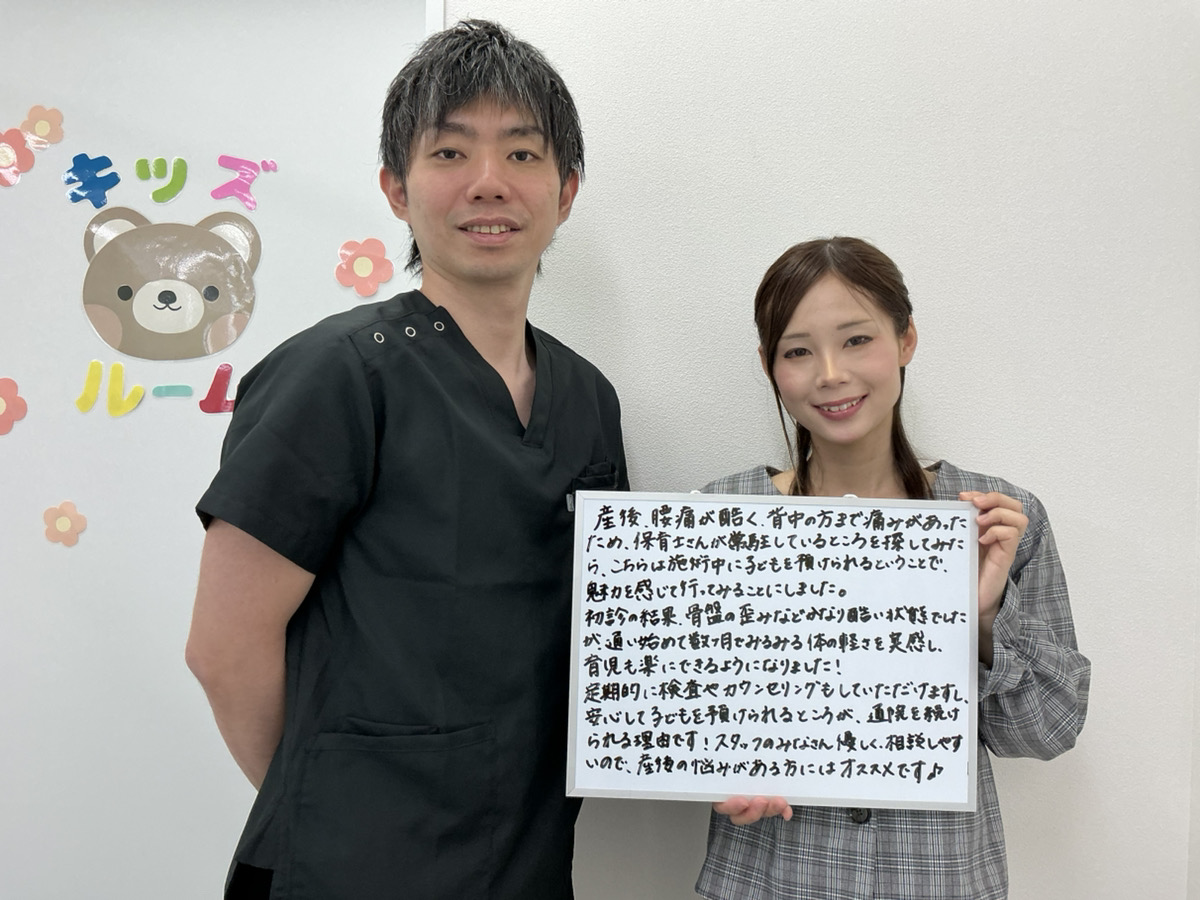 キッズ
ルーム
産後、腰痛が酷く、背中の方まで痛みがあった
ため、保育士さんが常駐しているところを探してみた
ら、こちらは施術中に子どもを預けられるということで、
魅力を感じて行ってみることにしました。
初診の結果、骨盤の歪みなどかなり酷い状態でした
が、通い始めて数ヶ月でみるみる体の軽さを実感し、
育児も楽にできるようになりました!
定期的に検査やカウンセリングもしていただけますし、
安心して子どもを預けられるところが、通院を続け
られる理由です!スタッフのみなさん優しく、相談しやす
いので、産後の悩みがある方にはオススメです♪